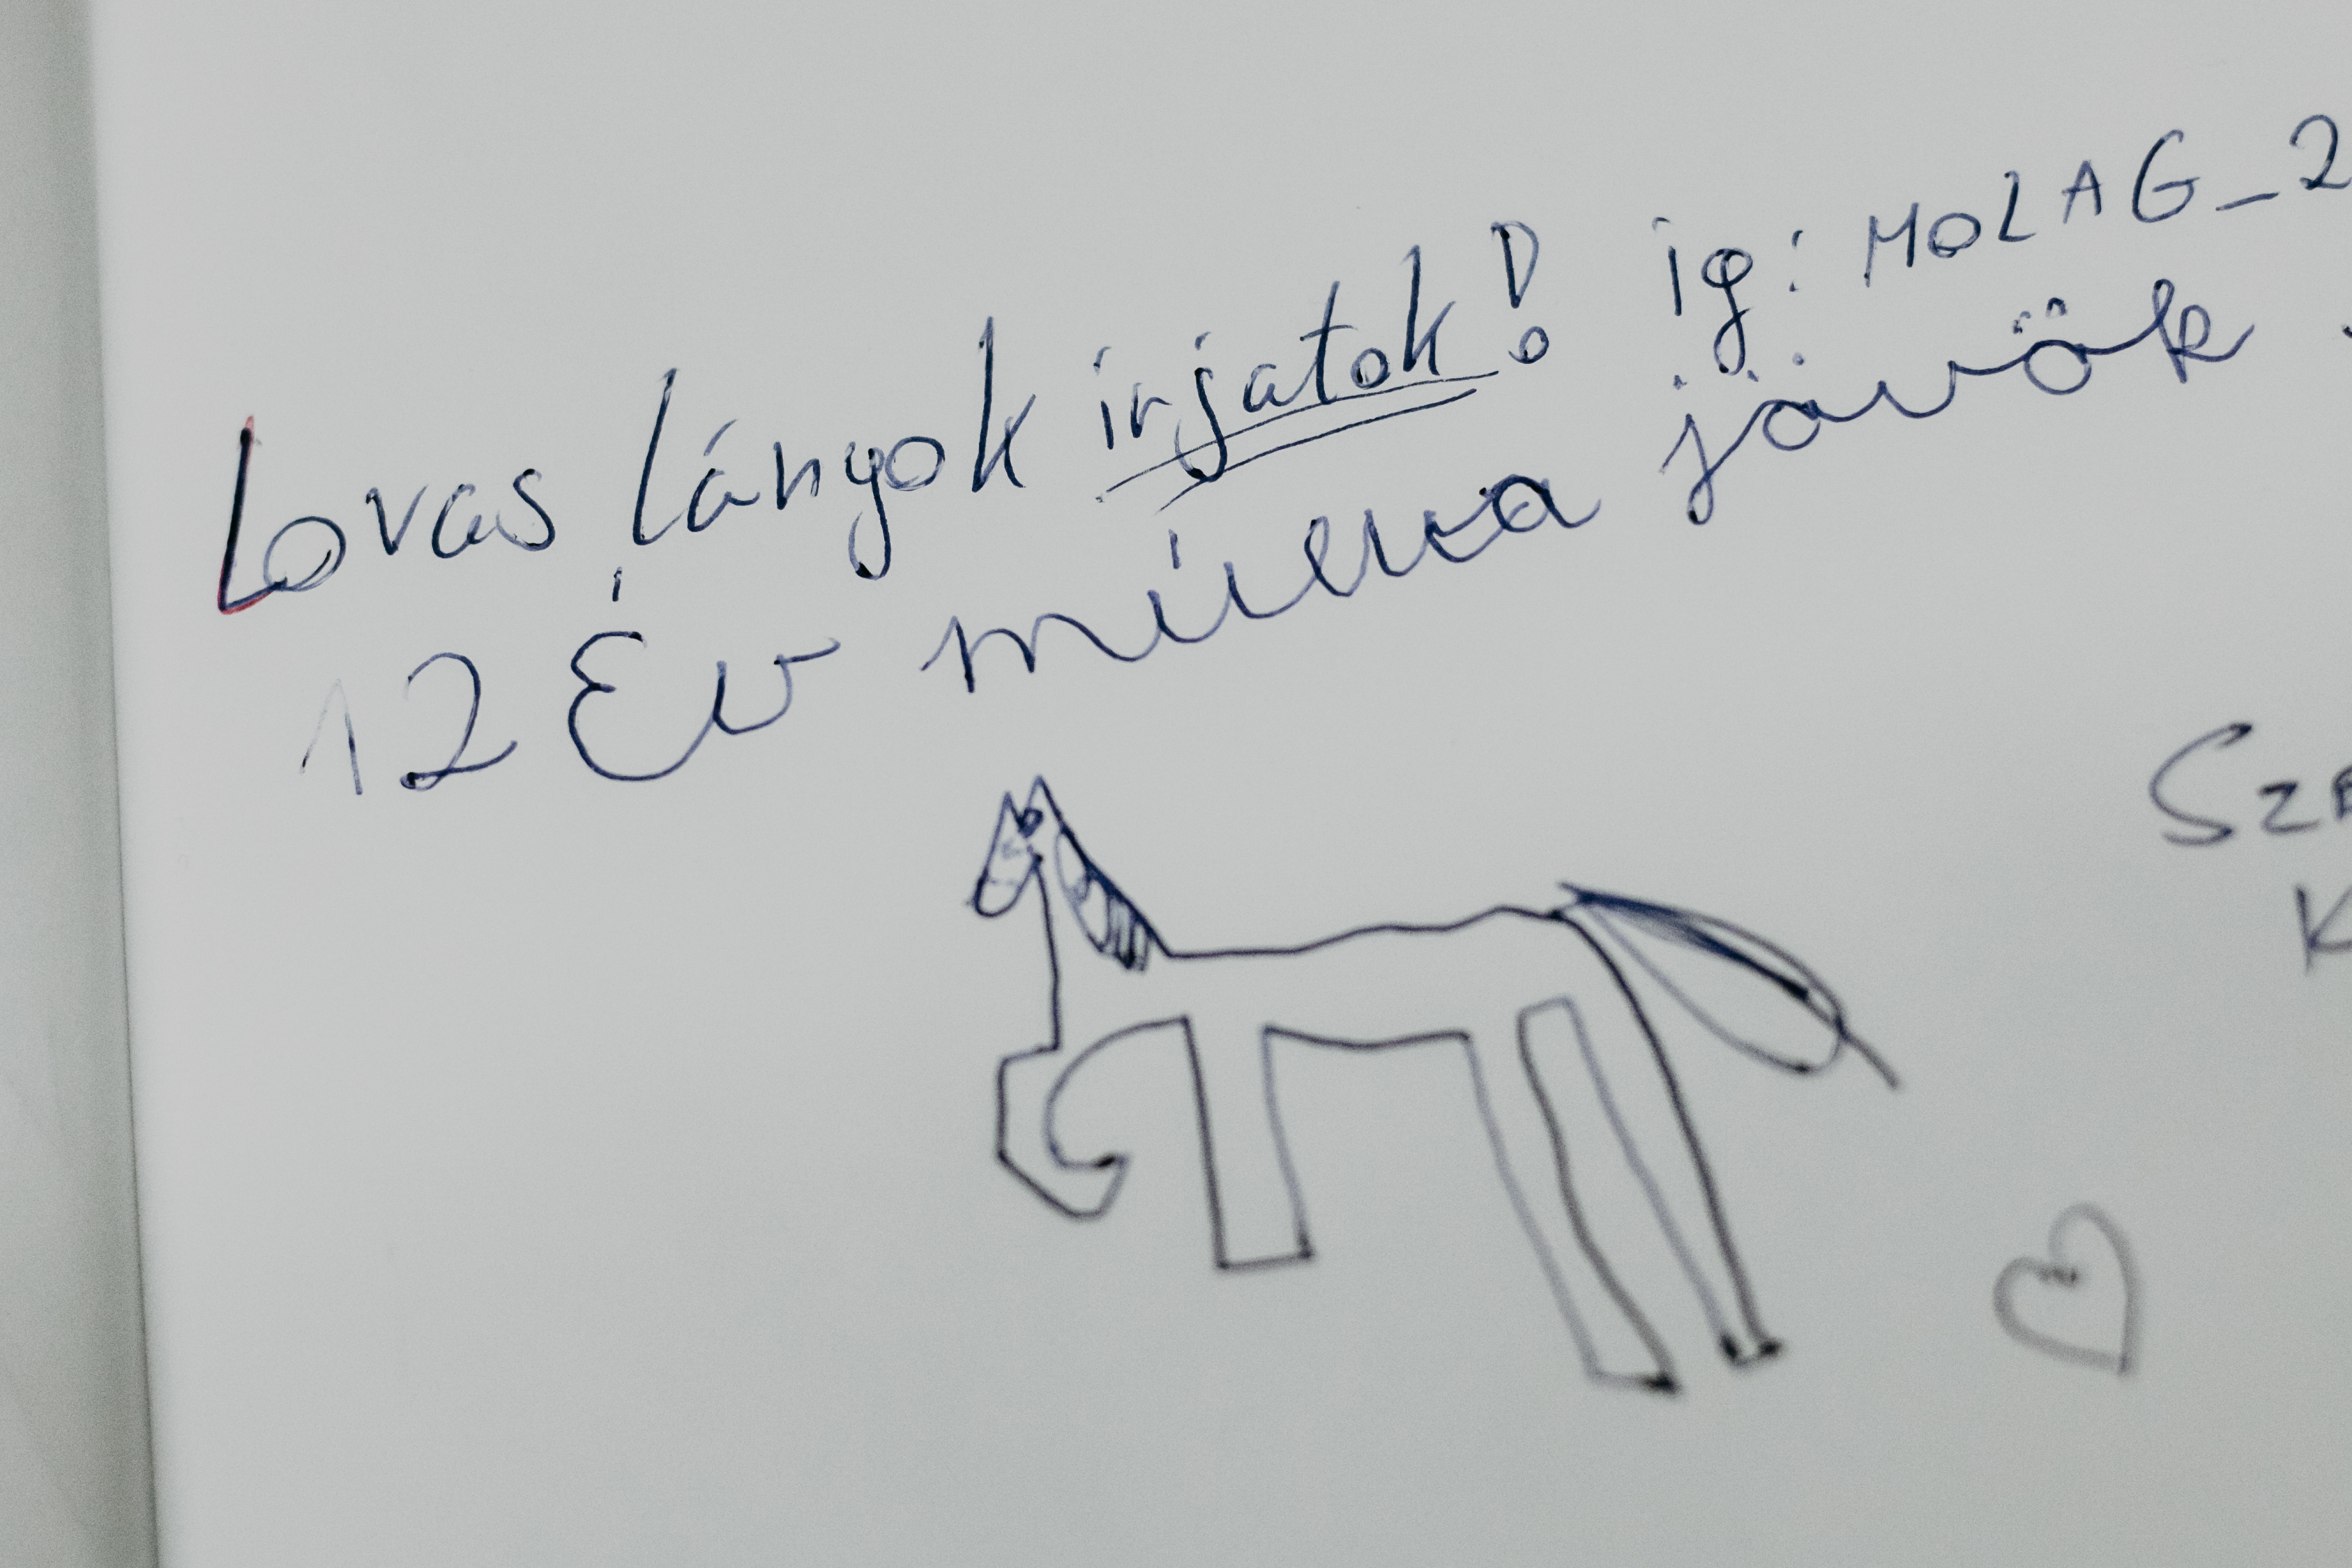 Lovas lányok irjatok! ig: MOLAG_2
12 Év múlva jövök